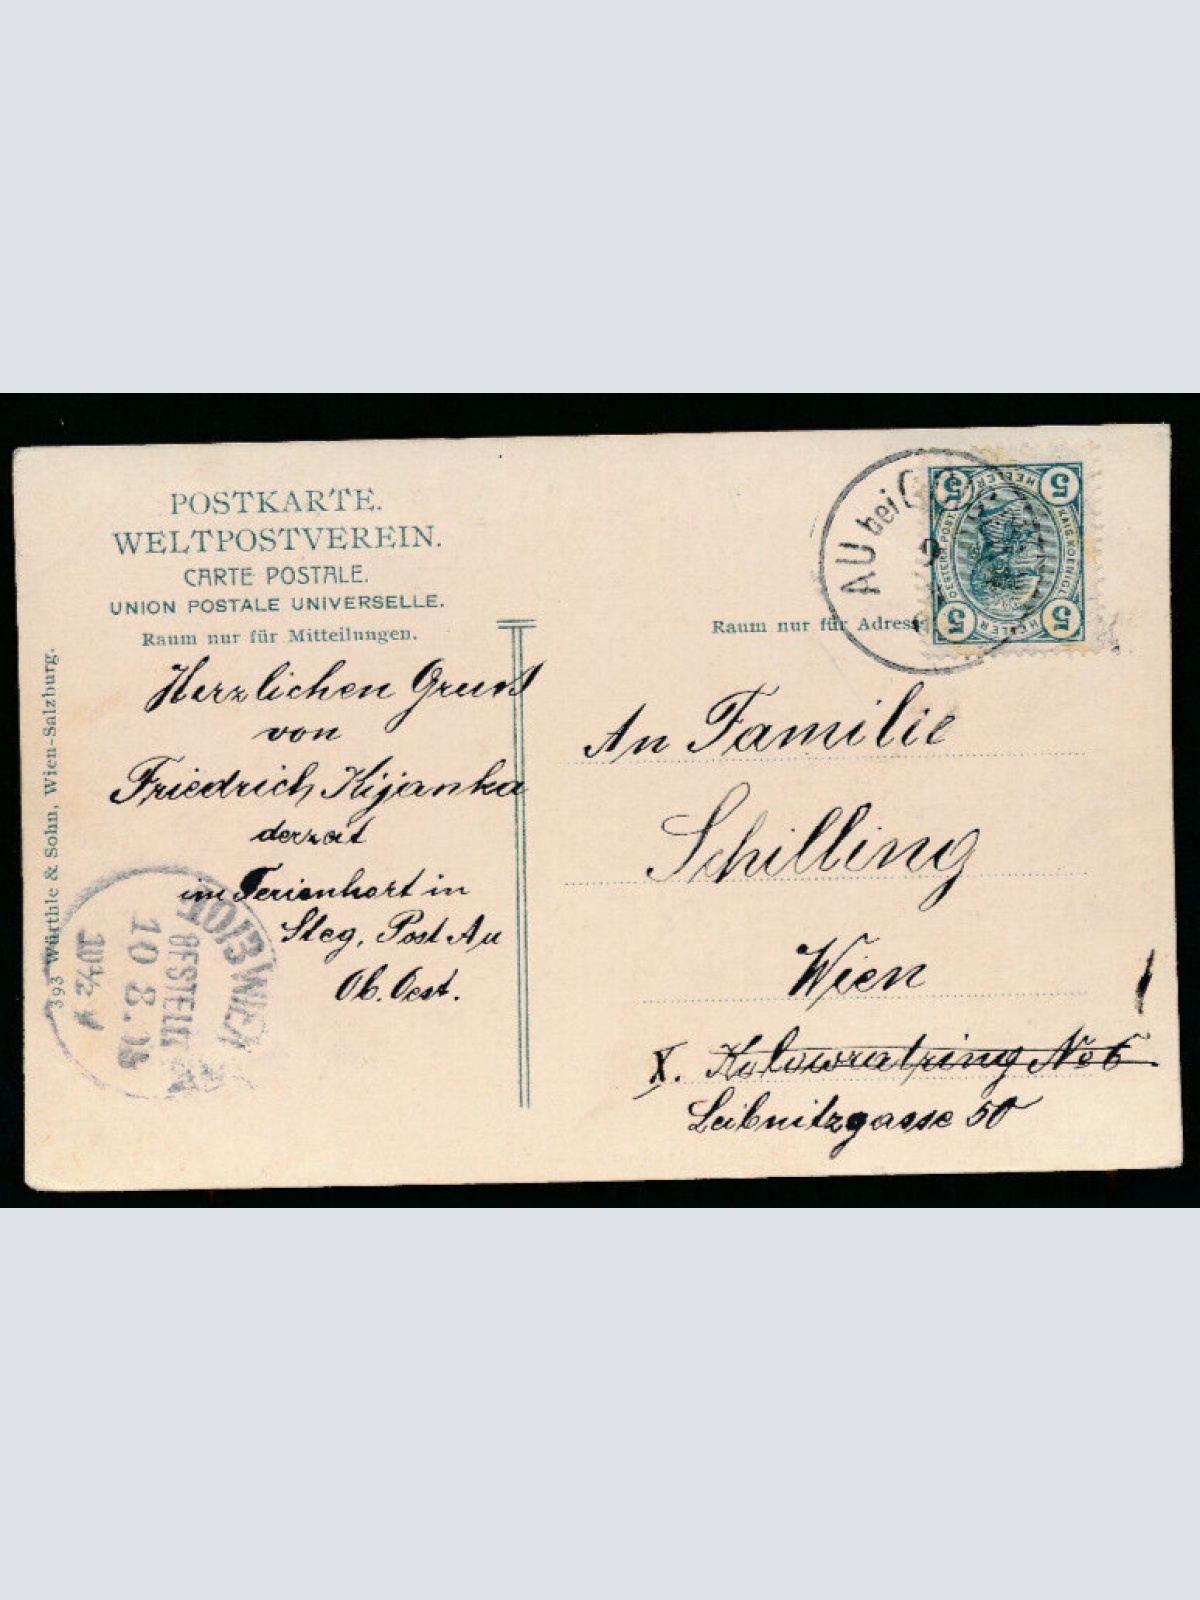 POSTKARTE.
WELTPOSTVEREIN.
CARTE POSTALE.
UNION POSTALE UNIVERSELLE.
Raum nur für Mitteilungen.
Herzlichen Gruss
von
Friedrich Kijanka
derzeit
im Ferienhort in
Steg, Post Au
Ob. Oest.
393 Würthle & Sohn, Wien-Salzburg.
WIEN
BESTELLT
10 8. 08
10½ V
AU bei
9
5 HELLER 5
OESTERR. POST.
KAIS. KOENIGL.
5 HELLER 5
Raum nur für Adresse
An Familie
Schilling
Wien
X. Kolowratring No 6
Leibnitzgasse 50